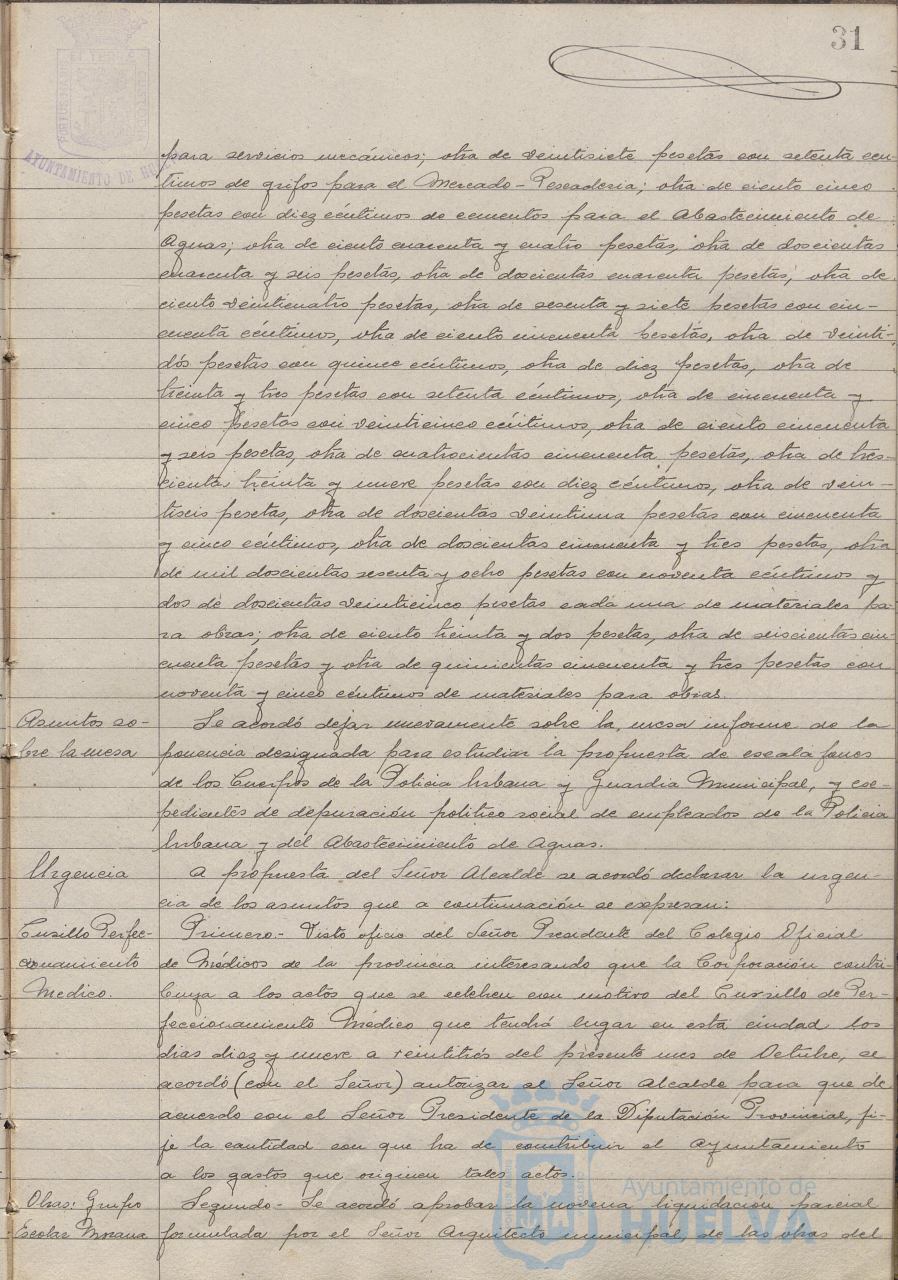 31
AYUNTAMIENTO DE HUELVA
para servicios mecánicos; otra de veintisiete pesetas con setenta cén-
timos de grifos para el Mercado-Pescadería; otra de ciento cinco
pesetas con diez céntimos de cementos para el Abastecimiento de
Aguas; otra de ciento cuarenta y cuatro pesetas, otra de doscientas
cuarenta y seis pesetas, otra de doscientas cuarenta pesetas, otra de
ciento veinticuatro pesetas, otra de sesenta y siete pesetas con cin-
cuenta céntimos, otra de ciento cincuenta pesetas, otra de veinti-
dós pesetas con quince céntimos, otra de diez pesetas, otra de
treinta y tres pesetas con setenta céntimos, otra de cincuenta y
cinco pesetas con veinticinco céntimos, otra de ciento cincuenta
y seis pesetas, otra de cuatrocientas cincuenta pesetas, otra de tres-
cientas treinta y nueve pesetas con diez céntimos, otra de vein-
tiseis pesetas, otra de doscientas veintiuna pesetas con cincuenta
y cinco céntimos, otra de doscientas cincuenta y tres pesetas, otra
de mil doscientas sesenta y ocho pesetas con noventa céntimos y
dos de doscientas veinticinco pesetas cada una de materiales pa-
ra obras; otra de ciento treinta y dos pesetas, otra de seiscientas cin-
cuenta pesetas y otra de quinientas cincuenta y tres pesetas con
noventa y cinco céntimos de materiales para obras.
Asuntos so-
bre la mesa
Se acordó dejar nuevamente sobre la mesa informe de la
ponencia designada para estudiar la propuesta de escalafones
de los Cuerpos de la Policia Urbana y Guardia Municipal, y ex-
pedientes de depuración político social de empleados de la Policia
Urbana y del Abastecimiento de Aguas.
Urgencia
A propuesta del Señor Alcalde se acordó declarar la urgen-
cia de los asuntos que a continuación se expresan:
Cursillo Perfec-
cionamiento
Medico.
Primero.- Visto oficio del Señor Presidente del Colegio Oficial
de Médicos de la provincia interesando que la Corporación contri-
buya a los actos que se celebren con motivo del Cursillo de Per-
feccionamiento Médico que tendrá lugar en esta ciudad los
dias diez y nueve a veintitrés del presente mes de Octubre, se
acordó (con el Señor) autorizar al Señor Alcalde para que de
acuerdo con el Señor Presidente de la Diputación Provincial, fi-
je la cantidad con que ha de contribuir el Ayuntamiento
a los gastos que originen tales actos.
Obras: Grupo
Escolar Morana
Segundo.- Se acordó aprobar la novena liquidación parcial
formulada por el Señor Arquitecto municipal, de las obras del
Ayuntamiento de
HUELVA